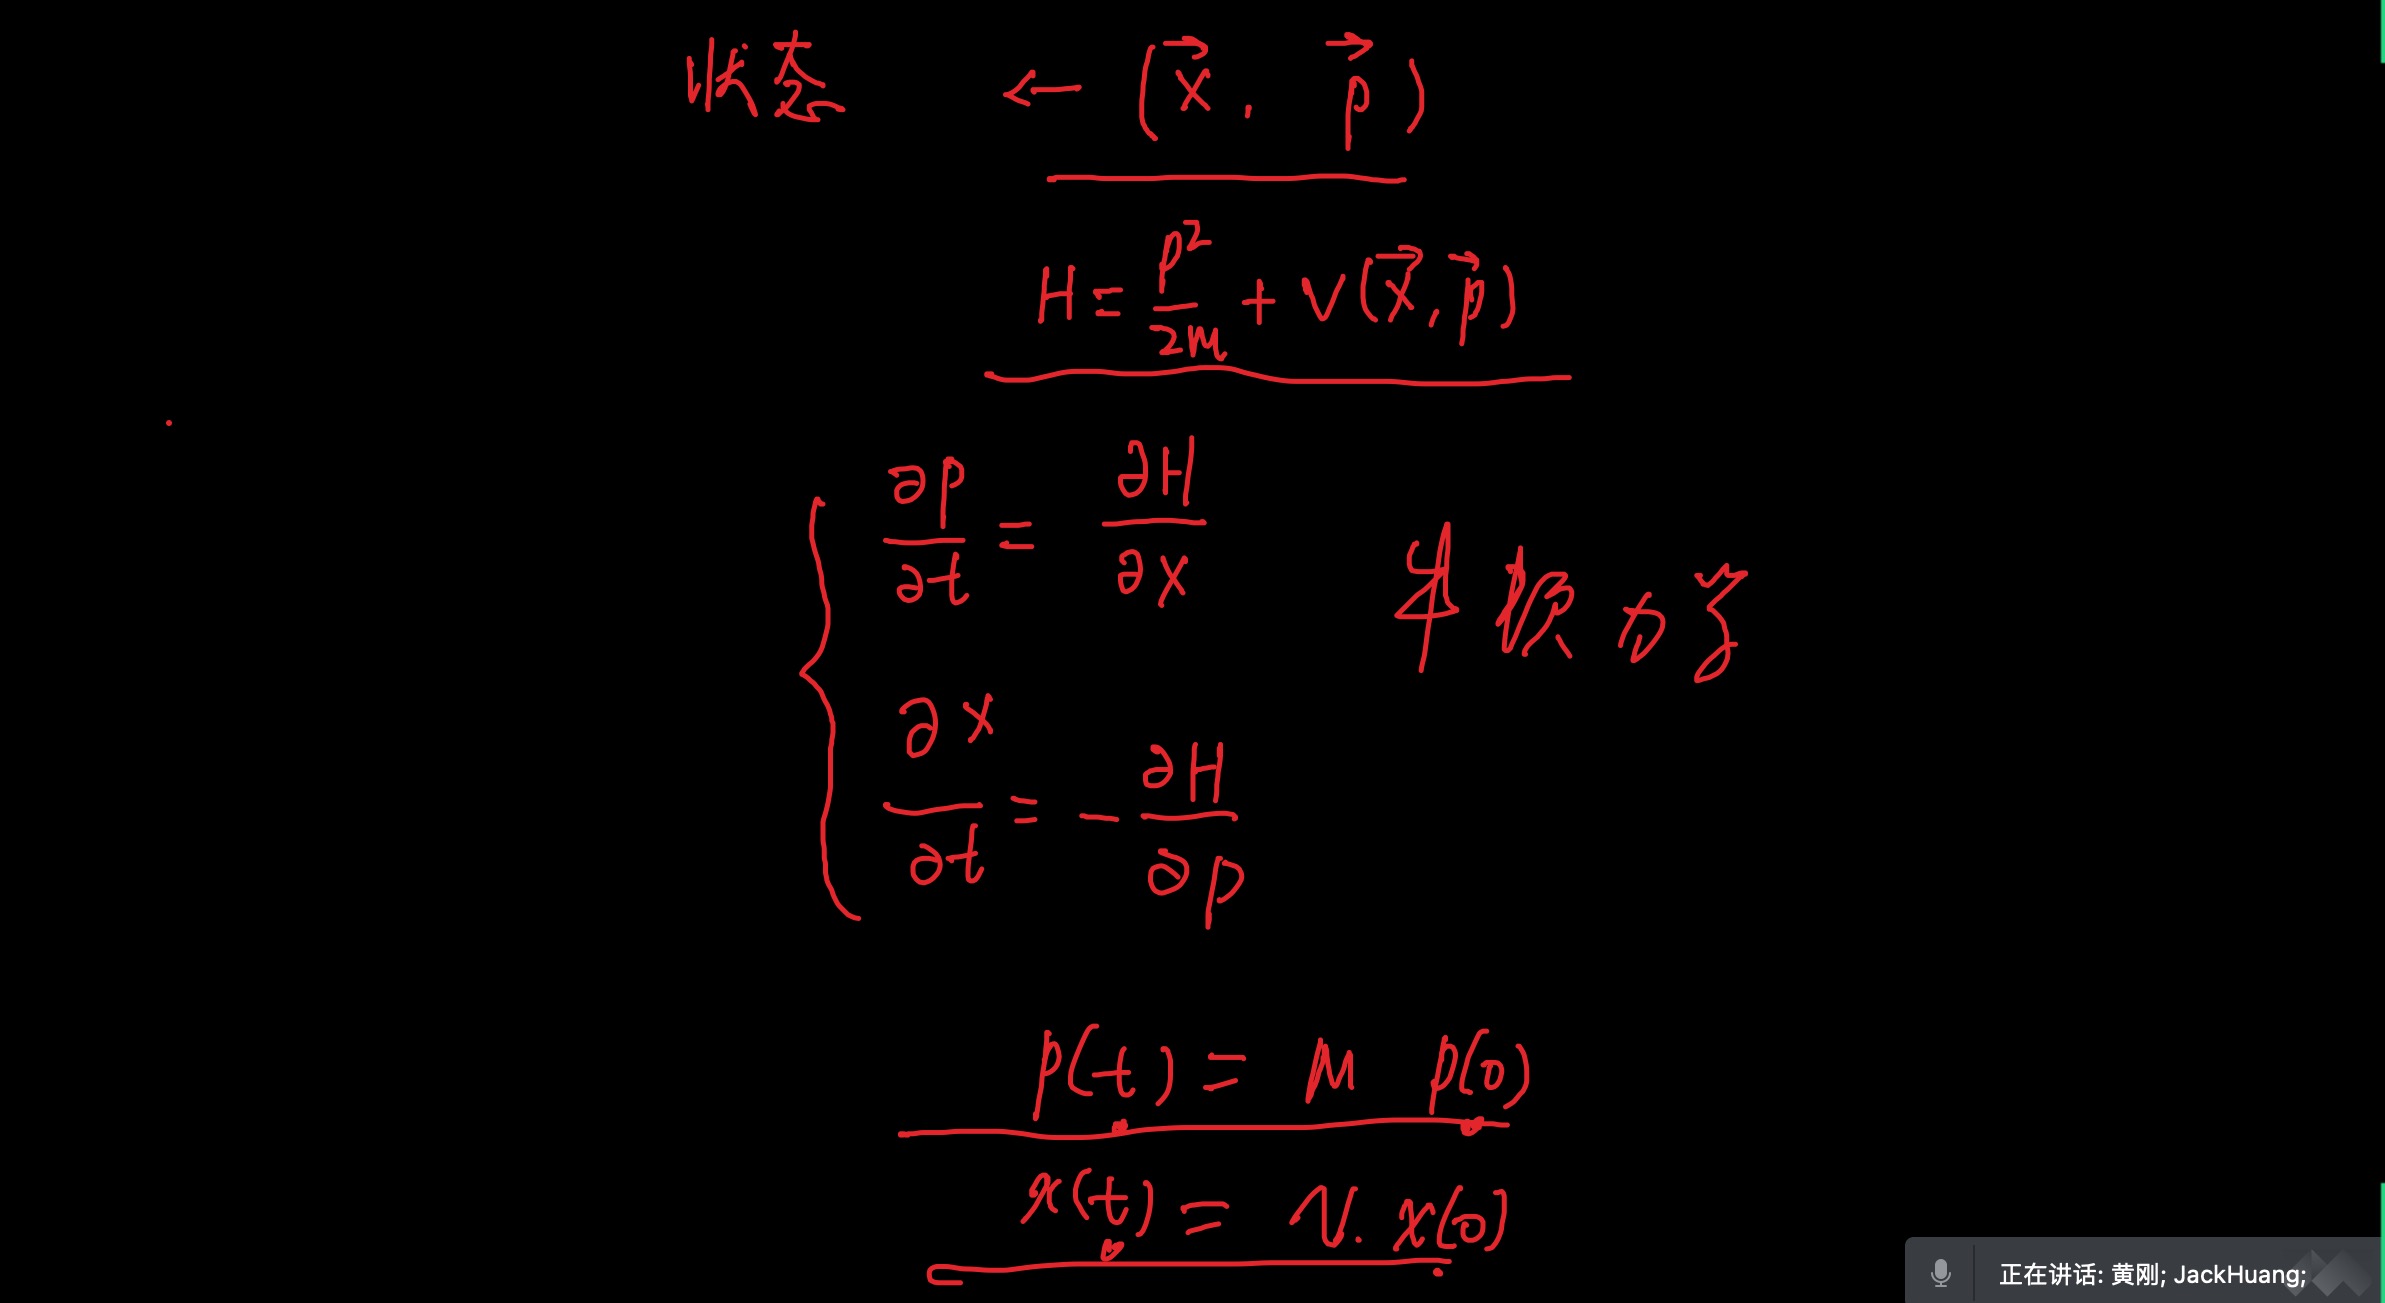 状态 ← (x⃗, p⃗)
H = p²/2m + V(x⃗, p⃗)
∂p/∂t = ∂H/∂x
牛顿力学
∂x/∂t = - ∂H/∂p
p(t) = M p(0)
x(t) = N. x(0)
正在讲话: 黄刚; JackHuang;